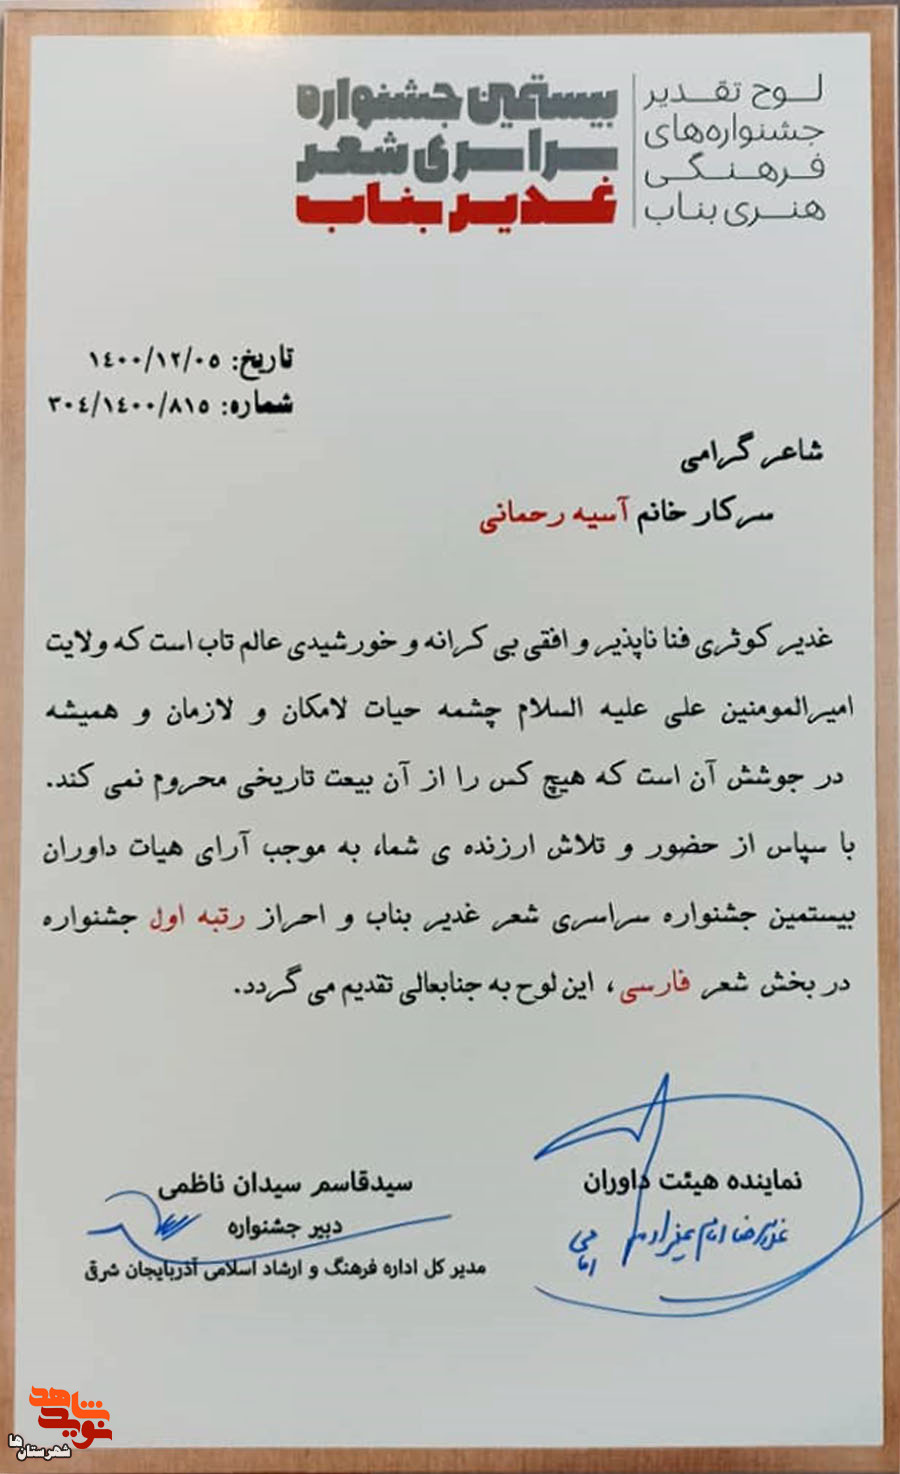 لوح تقدیر
جشنواره‌های
فرهنگی
هنری بناب
بیستمین جشنواره
سراسری شعر
غدیر بناب
تاریخ: ۱۴۰۰/۱۲/۰۵
شماره: ۳۰۴/۱۴۰۰/۸۱۵
شاعر گرامی
سرکار خانم آسیه رحمانی
غدیر کوثری فنا ناپذیر و افقی بی کرانه و خورشیدی عالم تاب است که ولایت
امیرالمومنین علی علیه السلام چشمه حیات لامکان و لازمان و همیشه
در جوشش آن است که هیچ کس را از آن بیعت تاریخی محروم نمی کند.
با سپاس از حضور و تلاش ارزنده ی شما، به موجب آرای هیات داوران
بیستمین جشنواره سراسری شعر غدیر بناب و احراز رتبه اول جشنواره
در بخش شعر فارسی، این لوح به جنابعالی تقدیم می گردد.
نماینده هیئت داوران
سیدقاسم سیدان ناظمی
دبیر جشنواره
مدیر کل اداره فرهنگ و ارشاد اسلامی آذربایجان شرقی
نوید شاهد
شهرستان‌ها